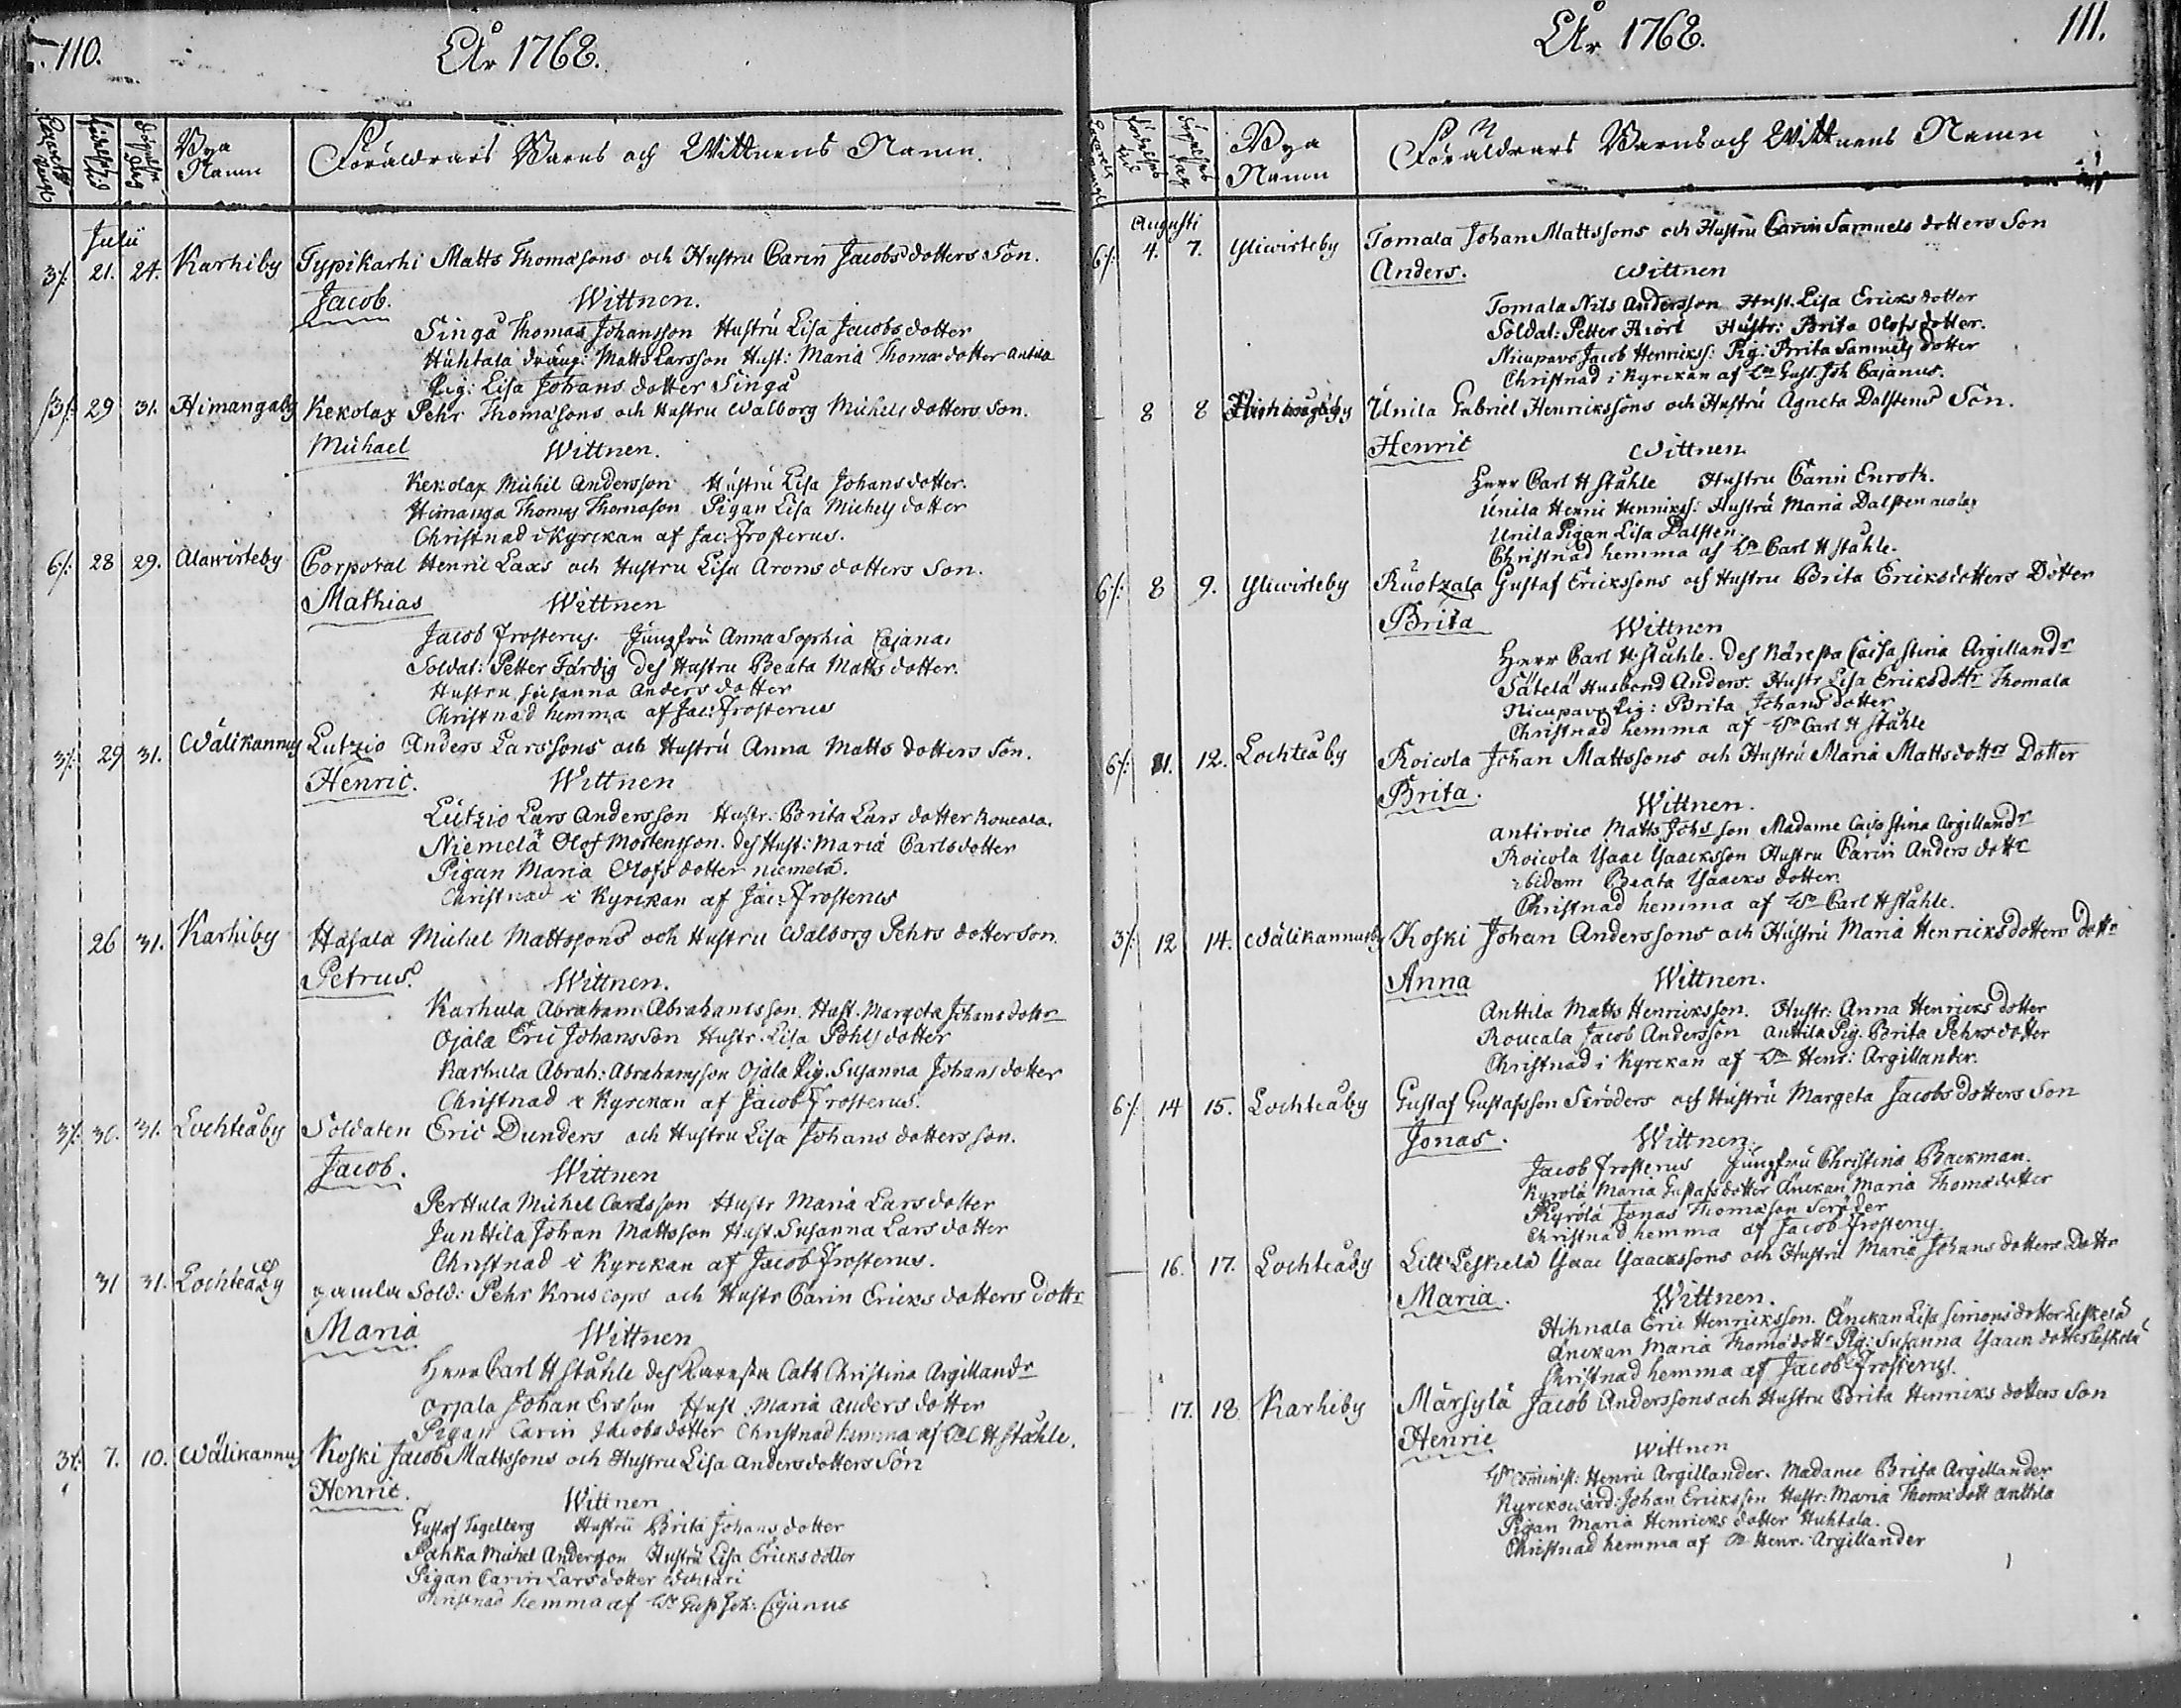 110.
År 1768.
Födelse tid
Döpelse Dag
Bya Namn
Föräldrars Barns och Wittnens Namn.
Julii
3/: 21. 24. Karhiby Typikarhi Matts Thomæsons och Hustru Carin Jacobs dotters Son.
Jacob. Wittnen.
Singå Thomas Johansson Hustru Lisa Jacobs dotter
Huhtala dräng: Matts Larsson Hust: Maria Thomæ dotter Antila
Pig: Lisa Johans dotter Singå
3/: 29 31. Himangaby Kekolax Pehr Thomæsons och Hustru Walborg Michels dotters Son.
Michael Wittnen.
Kekolax Michil Andersson Hustru Lisa Johans dotter.
Himanga Thomas Thomæson Pigan Lisa Michels dotter
Christnad i Kyrckan af Jac: Frosterus.
6/: 28 29. Alawirteby Corporal Henric Laxs och Hustru Lisa Arons dotters Son.
Mathias Wittnen
Jacob Frosterus. Jungfru Anna Sophia Cajana.
Soldat: Petter Färdig des Hustru Beata Matts dotter.
Hustru Susanna Anders dotter
Christnad hemma af Jac: Frosterus
3/: 29 31. Wälikannus Lutzio Anders Larssons och Hustru Anna Matts dotters Son.
Henric. Wittnen
Lutzio Lars Andersson Hustr: Brita Lars dotter Roucala.
Niemelä Olof Mortensson. des Hust: Maria Carls dotter
Pigan Maria Olofs dotter Niemelä.
Christnad i Kyrckan af Jac: Frosterus
26 31. Karhiby Hasala Michel Mattssons och Hustru Walborg Pehrs dotter son.
Petrus. Wittnen.
Karhula Abraham Abrahamsson. Hust. Margeta Johans dottr
Ojala Eric Johansson Hustr. Lisa Pohls dotter
Karhula Abrah: Abrahamsson Ojala Pig. Susanna Johans dotter
Christnad i Kyrckan af Jacob Frosterus.
3/: 30. 31. Lochteåby Soldaten Eric Dunders och Hustru Lisa Johans dotters son.
Jacob. Wittnen
Perttula Michel Carlsson Hustr Maria Lars dotter
Junttila Johan Mattsson Hust. Susanna Lars dotter
Christnad i Kyrckan af Jacob Frosterus.
31 31. Lochteåby gamla Sold: Pehr Kruscops och Hustr Carin Ericks dotters dottr
Maria Wittnen
Herr Carl H Ståhle des Käresta Cath Christina Argillandr
Orjala Johan Ersson Hust. Maria Anders dotter
Pigan Carin Jacobs dotter Christnad hemma af H Ståhle.
3/: 7. 10. Wälikannus Koski Jacob Mattssons och Hustru Lisa Anders dotters Son
Henric. Wittnen
Gustaf Tegelberg Hustru Brita Johans dotter
Pahka Michel Andersson Hustru Lisa Ericks dotter
Pigan Carin Lars dotter
Christnad hemma af Hr Gust Joh: Cajanus
År 1768.
111.
Födelses tid
Döpelses dag
Bya Namn
Föräldrars Barns och Wittnens Namn
Augusti
6/: 4. 7. Yliwirteby Tomala Johan Mattssons och Hustru Carin Samuels dotters Son
Anders. Wittnen
Tomala Nils Andersson Hust. Lisa Ericks dotter
Soldat: Petter Hiort Hustr: Brita Olofs dotter.
Nicupavo Jacob Henrickss: Pig: Brita Samuels dotter
Christnad i Kyrckan af Hr Gust. Joh Cajanus.
8 8 Unila Gabriel Henrickssons och Hustru Agneta Dalstens Son.
Henric Wittnen.
Herr Carl H Ståhle Hustru Carin Enroth.
Unila Henric Henrickss: Hustru Maria Dalsten
Unila Pigan Lisa Dalsten.
Christnad hemma af Hr Carl H Ståhle.
6/: 8 9. Yliwirteby Ruotzala Gustaf Erickssons och Hustru Brita Ericksdotters Dotter
Brita Wittnen
Herr Carl H Ståhle. des Käresta Caisa Stina Argillandr
Sätelä Husbond Anders. Hustr Lisa Ericksdottr Thomala
Nicupavo Pig: Brita Johans dotter
Christnad hemma af Hr Carl H Ståhle
6/: 11. 12. Lochteåby Roicola Johan Mattssons och Hustru Maria Mattsdotters Dotter
Brita. Wittnen.
Antirvico Matts Johsson Madame Caisa Stina Argillandr
Roicola Ysaac Ysaacksson Hustru Carin Anders dottr
ibidem Beata Ysaacks dotter.
Christnad hemma af Hr Carl H Ståhle.
3/: 12 14. Wälikannusby Koski Johan Anderssons och Hustru Maria Henricks dotters dottr
Anna Wittnen.
Anttila Matts Henricksson. Hustr: Anna Henricks dotter
Roucala Jacob Andersson Anttila Pig. Brita Pehrs dotter
Christnad i Kyrckan af Hr Henr: Argillander.
6/: 14 15. Lochteåby Gustaf Gustafsson Scröders och Hustru Margeta Jacobs dotters Son
Jonas. Wittnen.
Jacob Frosterus Jungfru Christina Backman.
Kyrölä Maria Gustafs dotter Änckan Maria Thomæ dotter
Kyrölä Jonas Thomæson Scröder
Christnad hemma af Jacob Frosterus.
16. 17. Lochteåby Lill Leskelä Ysaac Ysaackssons och Hustru Maria Johans dotters Dottr
Maria. Wittnen.
Hihnala Eric Henricksson. Änckan Lisa Simons dotter Leskelä
Änckan Maria Thomædottr Pig: Susanna Ysaacs dotter Leskelä
Christnad hemma af Jacob Frosterus.
17. 18 Karhiby Märsylä Jacob Anderssons och Hustru Brita Henricks dotters Son
Henric Wittnen
Hr Cominist: Henric Argillander. Madame Brita Argillander
Kyrckowärd: Johan Ericksson Hustr: Maria Thomædott Anttila
Pigan Maria Henricks dotter Huhtala.
Christnad hemma af Hr Henr. Argillander